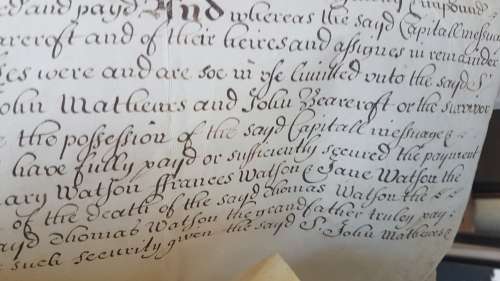 ed and payd And whereas the sayd Capitall messua
earcroft and of their heires and assignes in remainder
ses were and are soe in use limitted unto the sayd Sr
John Mathewes and John Bearcroft or the survivor
the possession of the sayd Capitall messuage &
have fully payd or sufficiently secured the payment
ary Watson Frances Watson & Jane Watson the
of the death of the sayd Thomas Watson the
ayd Thomas Watson the grandfather truley pay
such security given the sayd Sr John Mathewes &